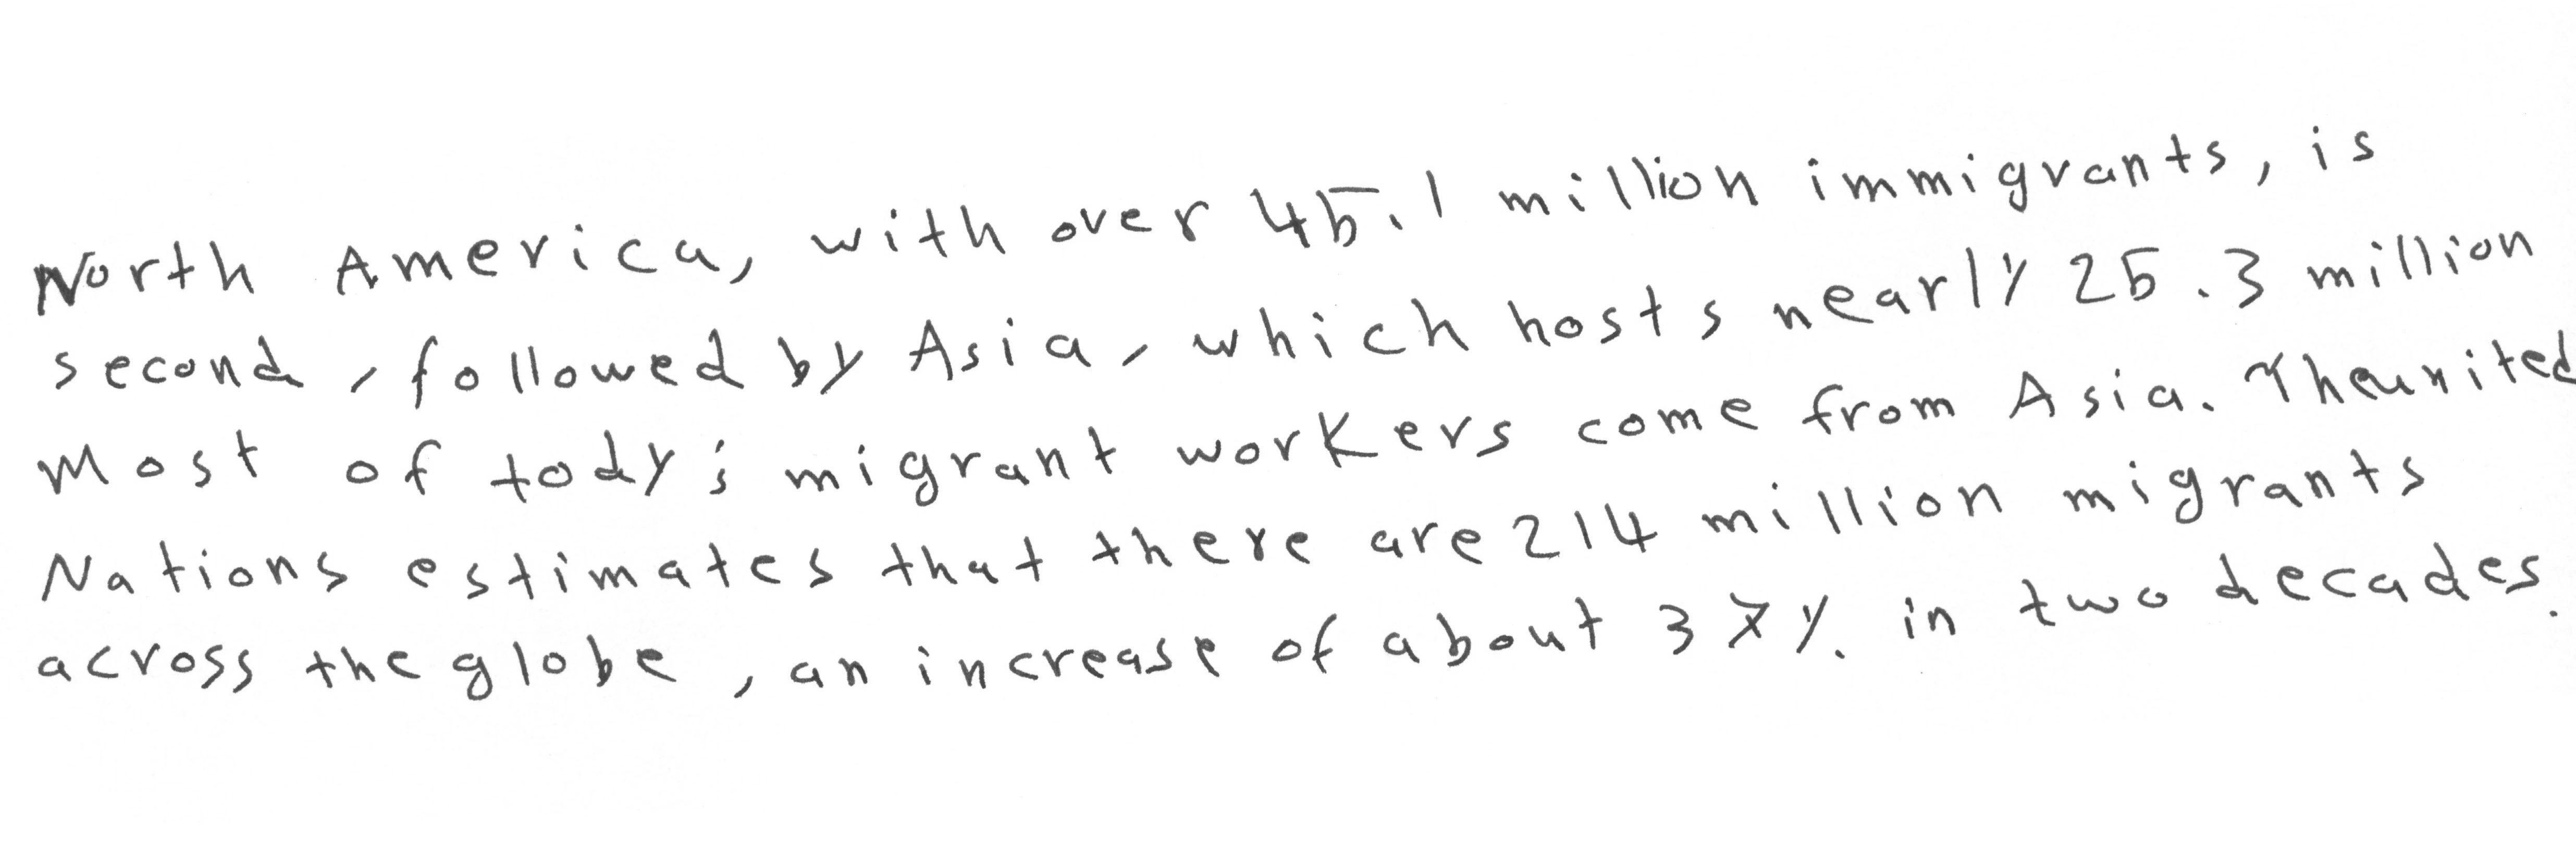 North America, with over 45.1 million immigrants, is
second, followed by Asia, which hosts nearly 25.3 million
Most of tody's migrant workers come from Asia. The united
Nations estimates that there are 214 million migrants
across the globe, an increase of about 37% in two decades.